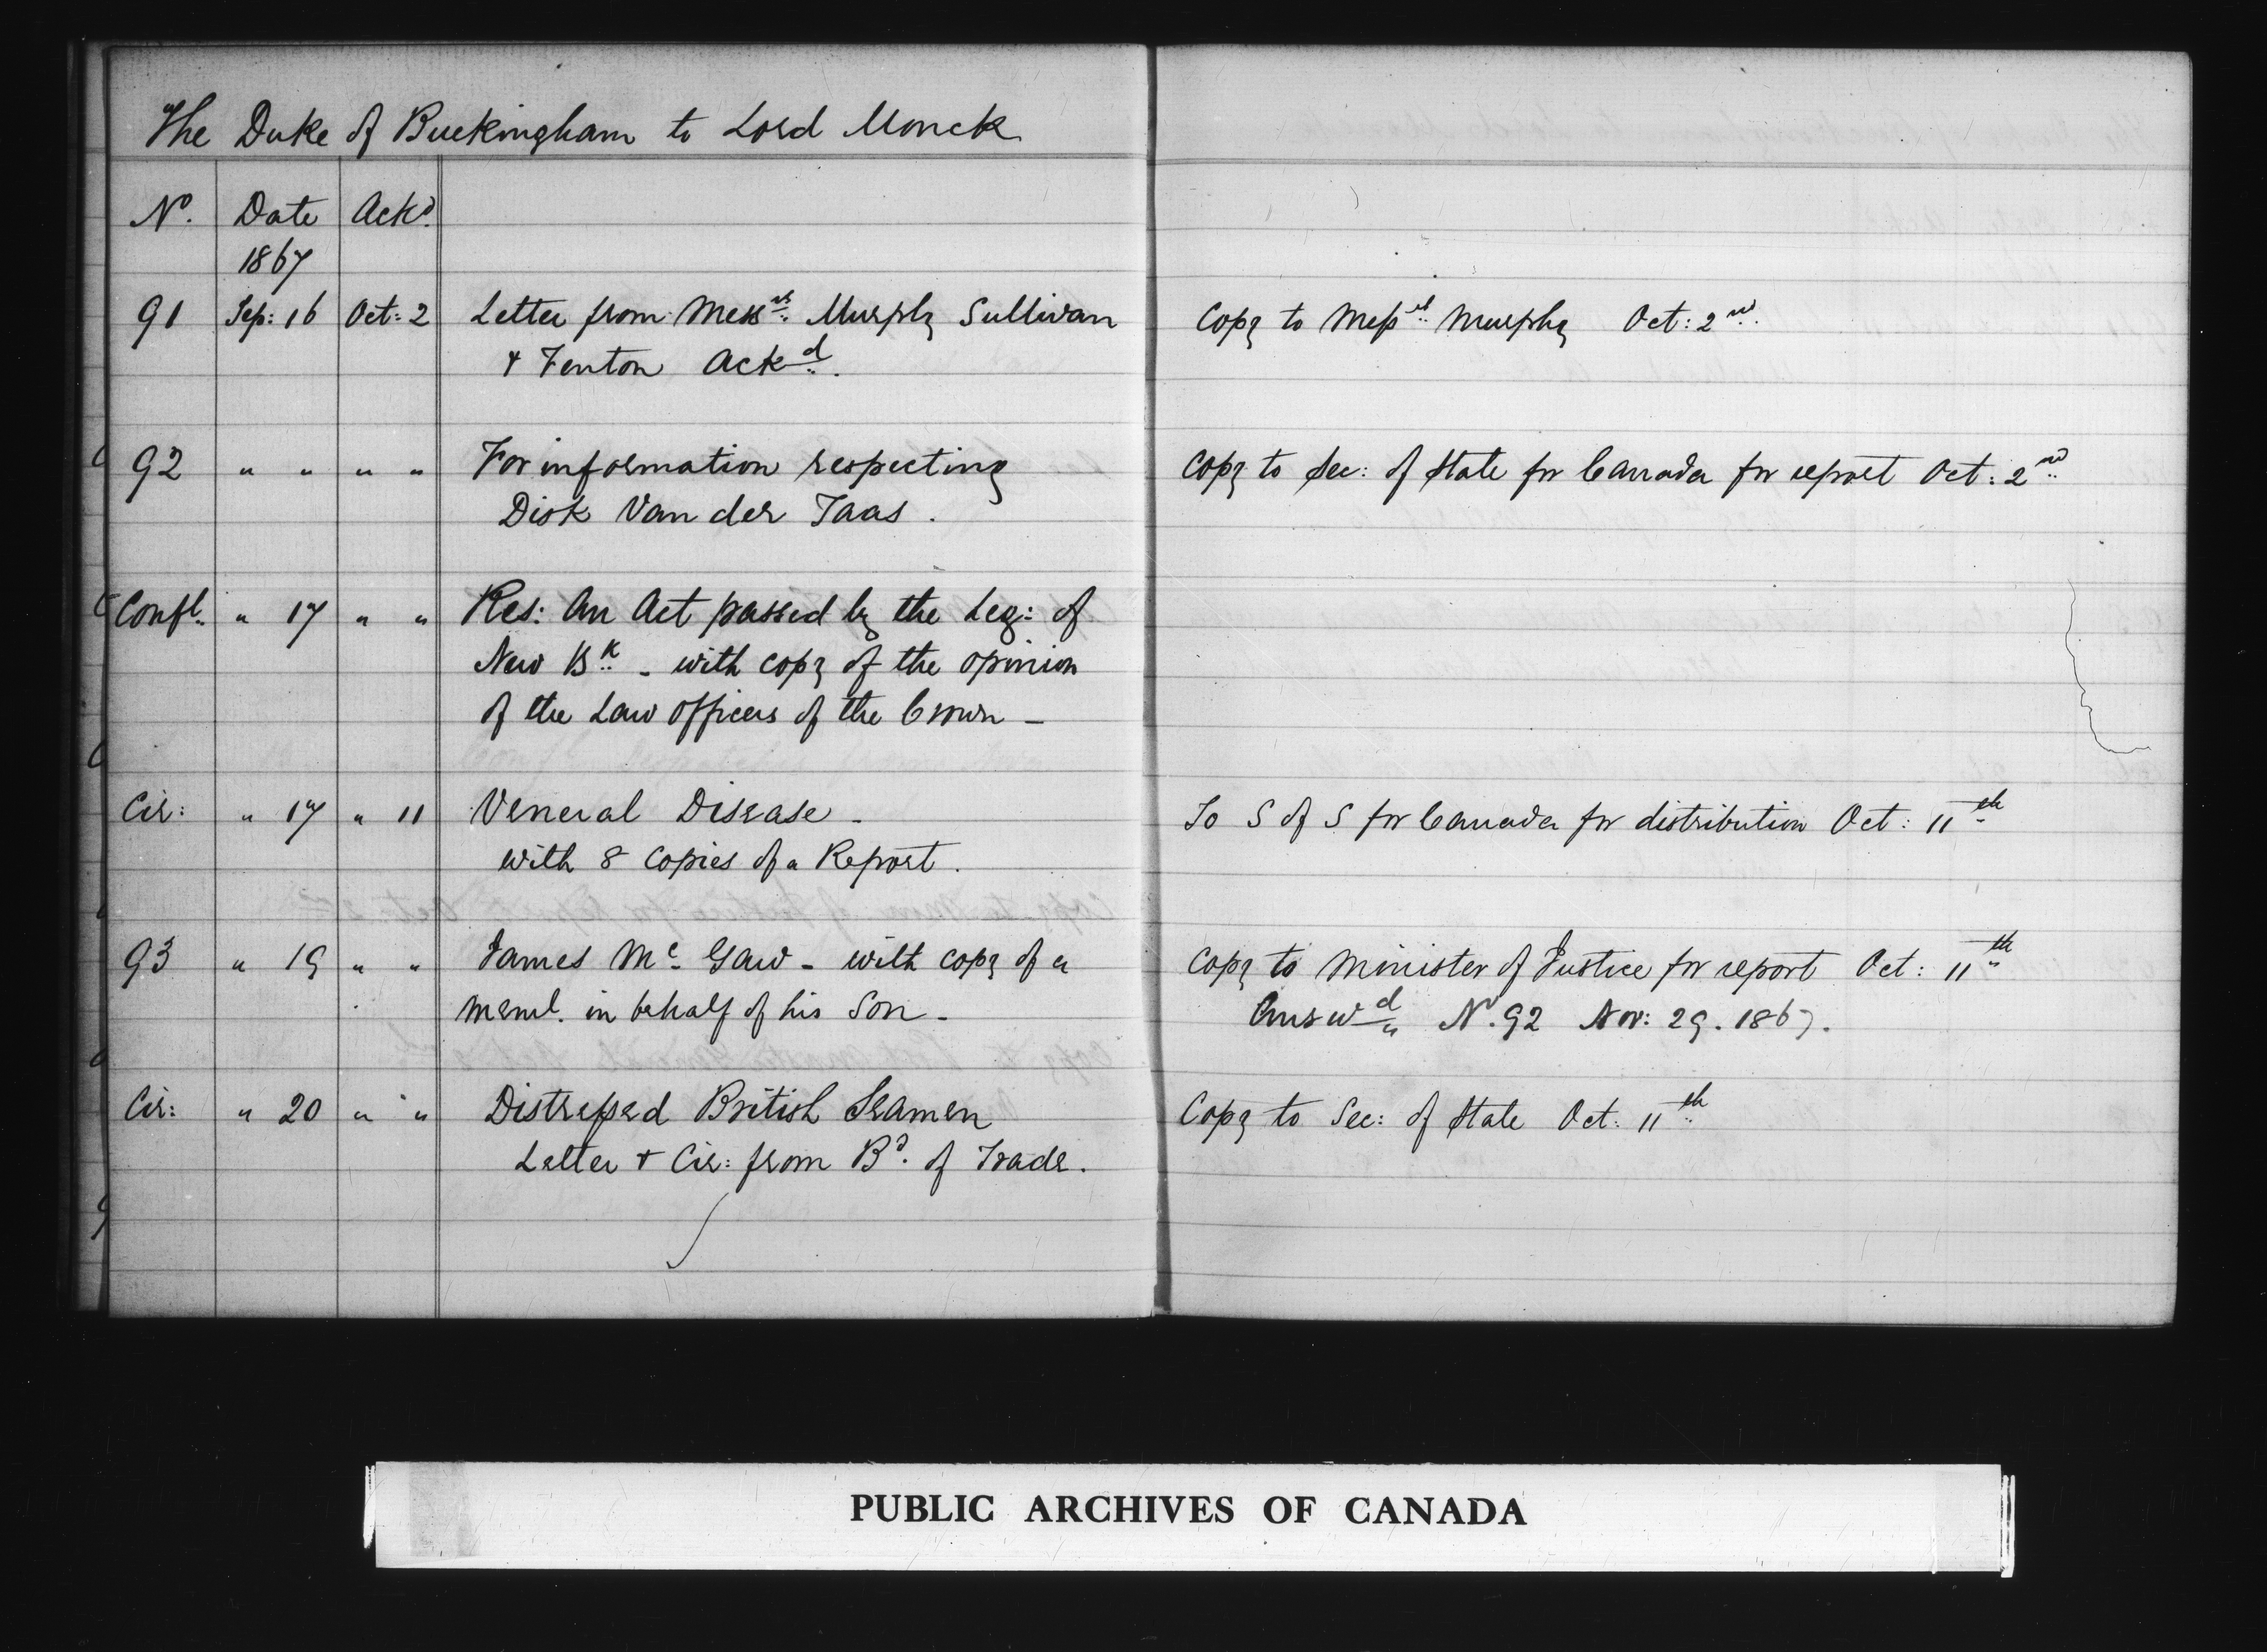 The Duke of Buckingham to Lord Monck
No. Date Ackd.
1867
91 Sep: 16 Oct: 2 Letter from Messrs. Murphy Sullivan Copy to Messrs. Murphy Oct: 2nd.
& Fenton Ackd.
92 " " " " For information respecting Copy to Sec: of State for Canada for report Oct: 2nd
Disk Van der Taas.
Confl. " 17 " " Res: An Act passed by the Leg: of
New Bk - with copy of the opinion
of the Law officers of the Crown -
Cir: " 17 " 11 Veneral Disease - To S of S for Canada for distribution Oct: 11th
with 8 copies of a Report.
93 " 19 " " James Mc Gaw - with copy of a Copy to Minister of Justice for report Oct: 11th
meml. in behalf of his Son - Answd No. 92 Nov: 29. 1867.
Cir: " 20 " " Distressed British Seamen Copy to Sec: of State Oct: 11th
Letter & Cir: from Bd. of Trade.
PUBLIC ARCHIVES OF CANADA